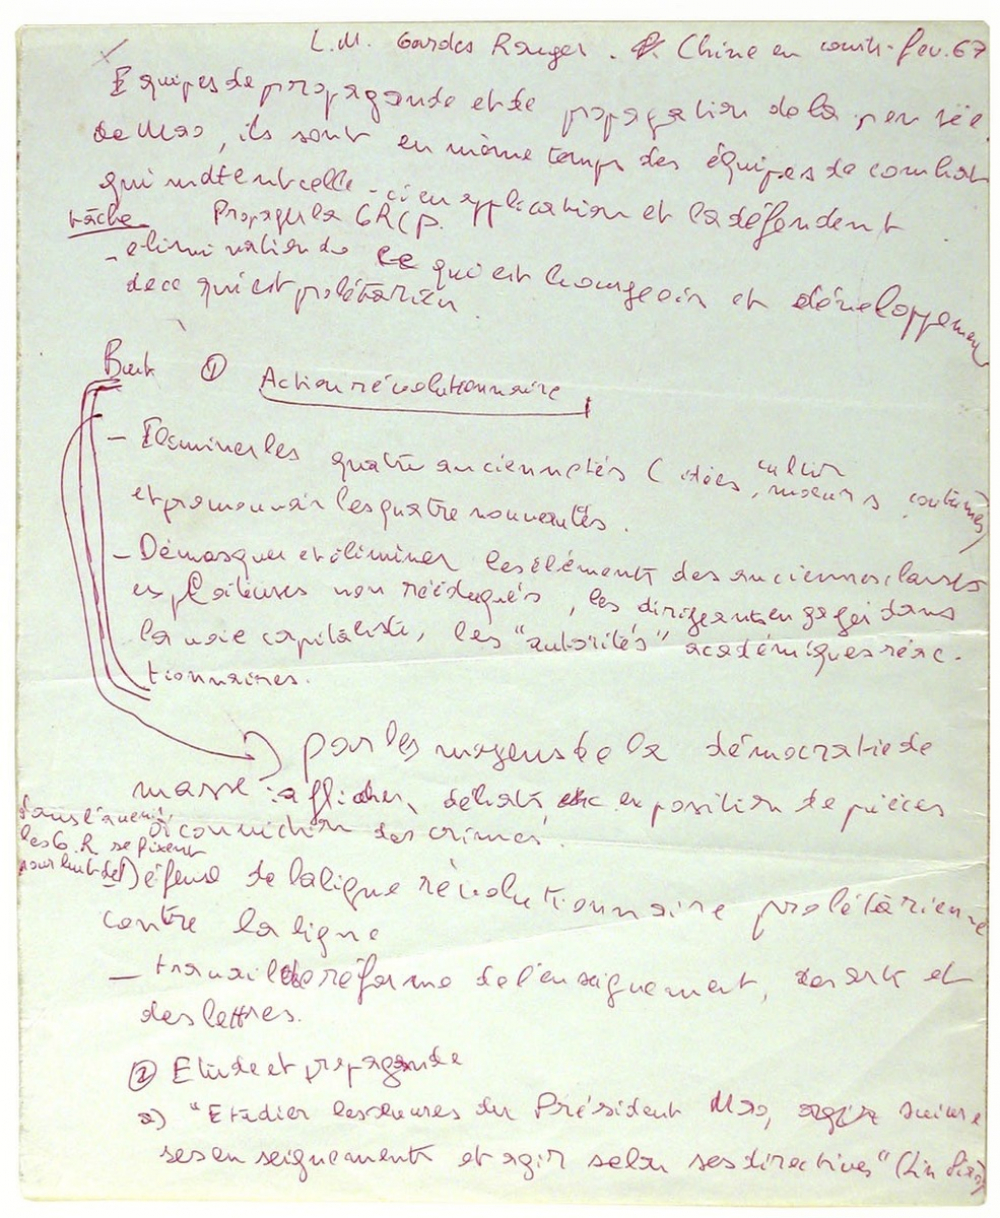 L.M. Gardes Rouges. Chine en construc. fev. 67
Equipes de propagande et de propagation de la pensée
de Mao, ils sont en même temps des équipes de combat
qui mettent celle-ci en application et la défendent
tâche Propager la GRCP.
- elimination de ce qui est bourgeois et développement
de ce qui est prolétarien.
But ① Action révolutionnaire
- Eliminer les quatre anciennetés (idées, culture, moeurs, coutumes)
et promouvoir les quatre nouveautés.
- Démasquer et éliminer les éléments des anciennes classes
exploiteuses non rééduqués, les dirigeants engagés dans
la voie capitaliste, les "autorités" académiques réac-
tionnaires.
par les moyens de la démocratie de
masse : affiches, débats, exposition de pièces
à conviction des crimes.
dans l'avenir,
les G.R. se fixent
pour but de
Défense de la ligne révolutionnaire prolétarienne
contre la ligne
- travail de réforme de l'enseignement, des arts et
des lettres.
② Etude et propagande
a) "Etudier les oeuvres du Président Mao, suivre
ses enseignements et agir selon ses directives" (Lin Piao)